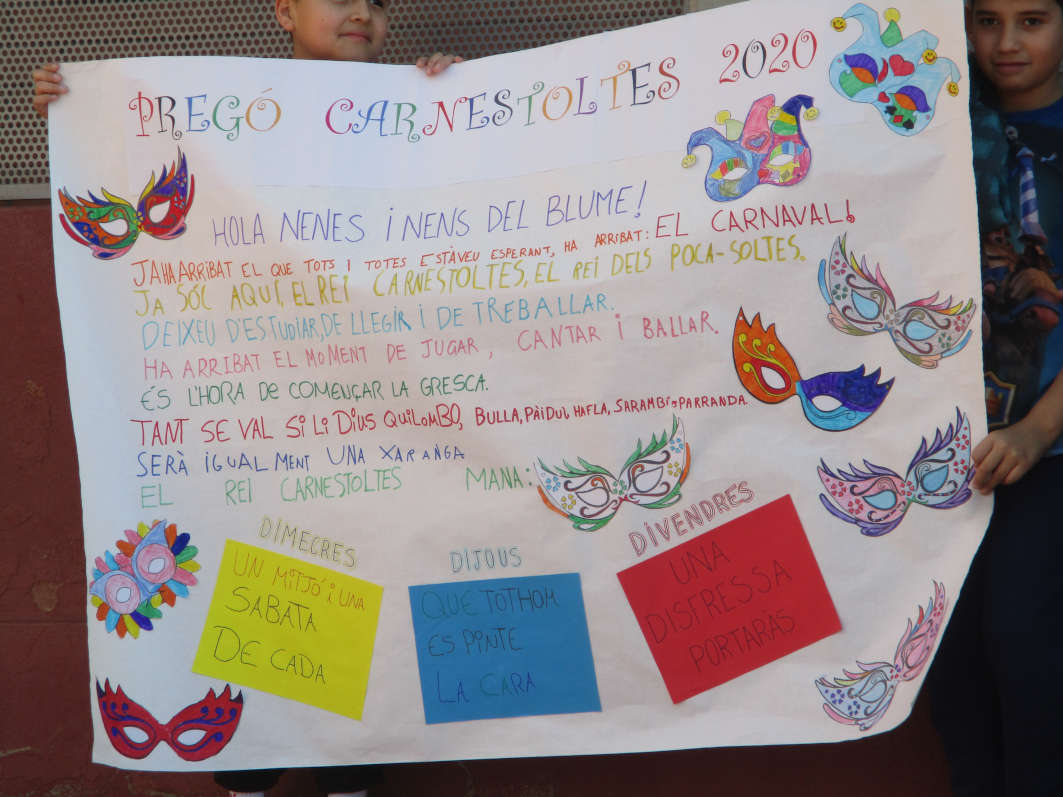 PREGÓ CARNESTOLTES 2020
HOLA NENES i NENS DEL BLUME!
JA HA ARRIBAT EL QUE TOTS I TOTES ESTÀVEU ESPERANT, HA ARRIBAT: EL CARNAVAL!
JA SÓC AQUÍ, EL REI CARNESTOLTES, EL REI DELS POCA-SOLTES.
DEIXEU D'ESTUDIAR, DE LLEGIR i DE TREBALLAR.
HA ARRIBAT EL MOMENT DE JUGAR, CANTAR i BALLAR.
ÉS L'HORA DE COMENÇAR LA GRESCA.
TANT SE VAL SI LI DIUS QUILOMBO, BULLA, PÀIDUI, HAFLA, SARAMBI, PARRANDA
SERÀ IGUALMENT UNA XARANGA
EL REI CARNESTOLTES MANA:
DIMECRES
UN MITJÓ i UNA
SABATA
DE CADA
DIJOUS
QUE TOTHOM
ES PINTE
LA CARA
DIVENDRES
UNA
DISFRESSA
PORTARÀS